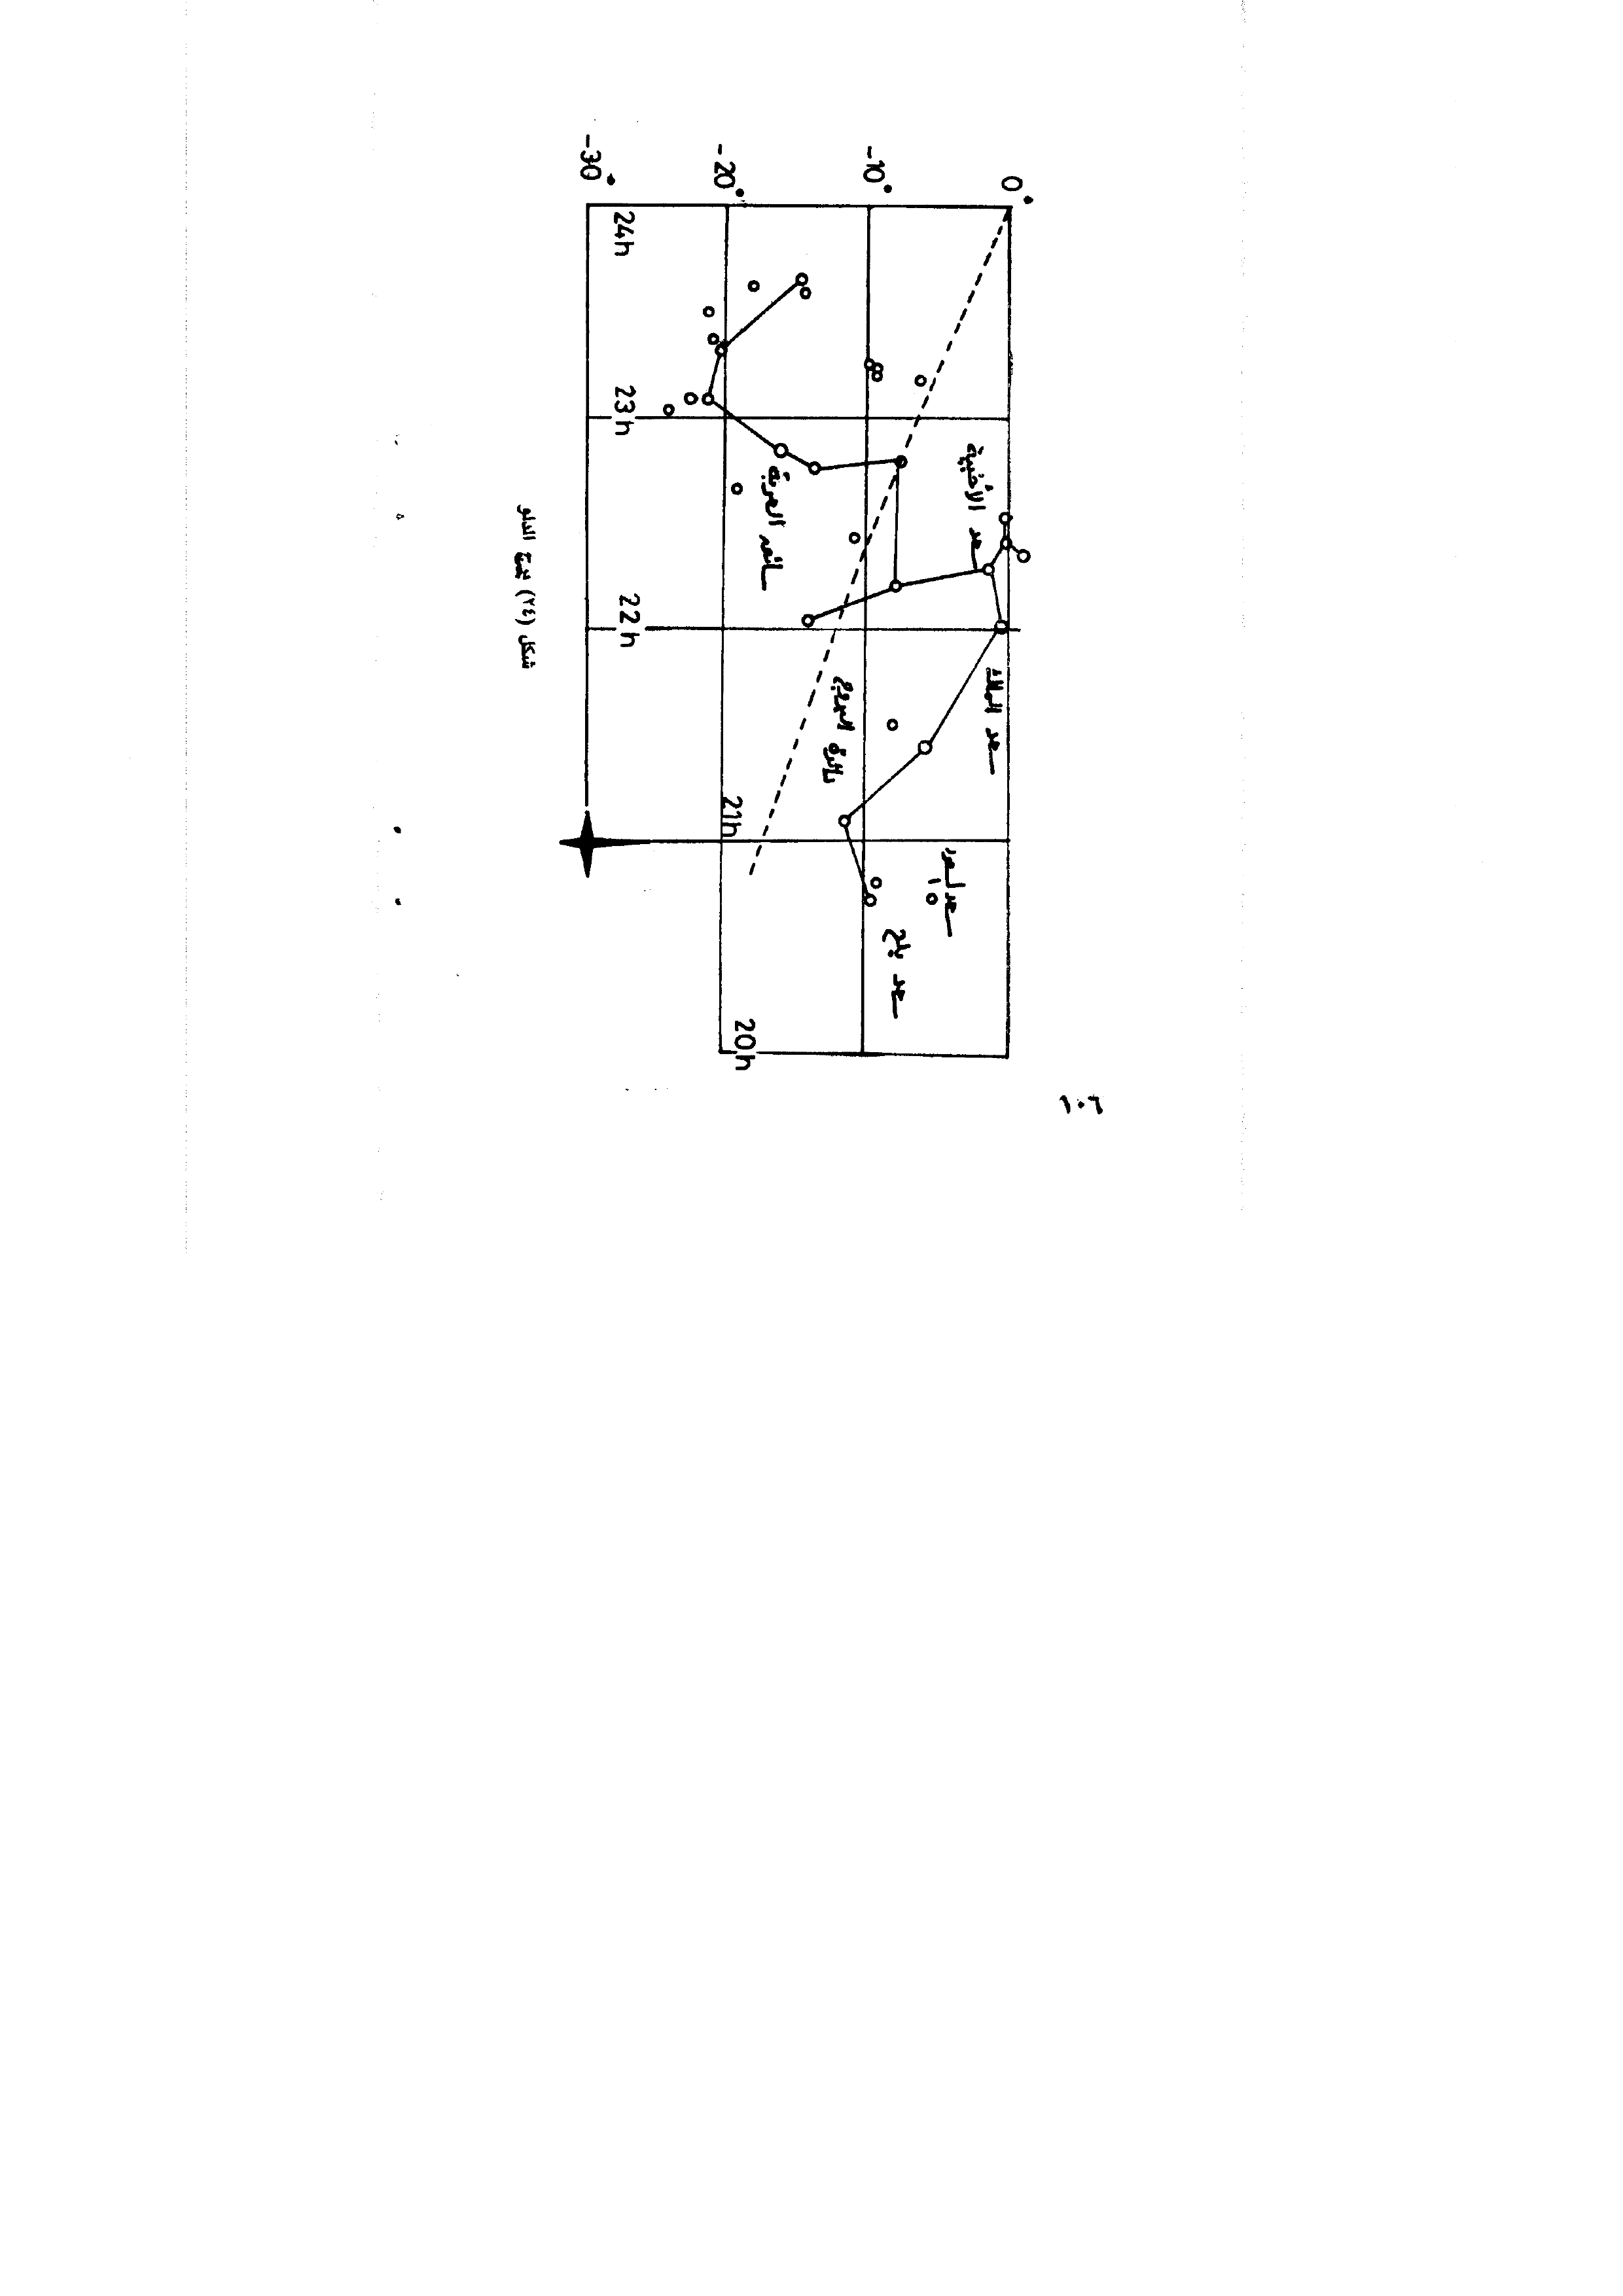 ١٠٦
0°
-10°
-20°
-30°
24h
23h
22h
21h
20h
سعد الأخبية
سعد الملك
سعد السعود
سعد بلع
دائرة البروج
شكل (٢٤) برج الدلو